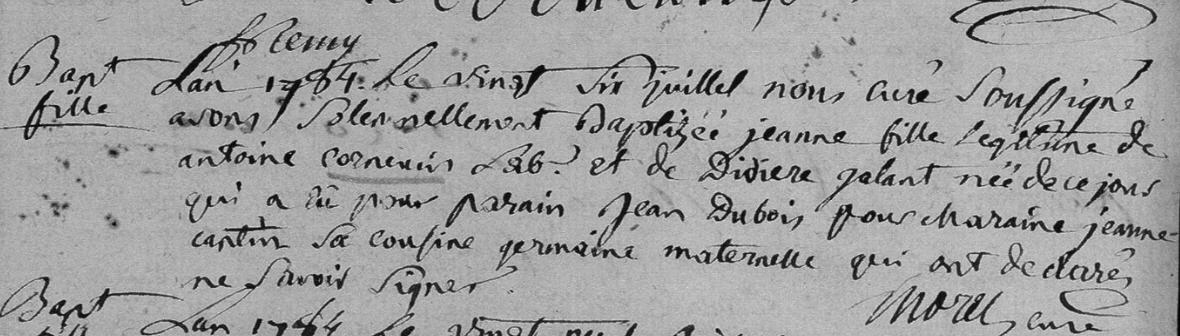 Bapt fille
L'an 1764. Le vingt six juillet nous curé soussigné
avons solennellement Baptizéé jeanne fille legitime de
antoine cornevin Lab.r et de Didiere galant néé de ce jour
qui a eü pour parain Jean Dubois pour Maraine jeanne
cantin sa cousine germaine maternelle qui ont declarés
ne savoir signer.
Morel curé
Bapt
L'an 1764 Le vingt